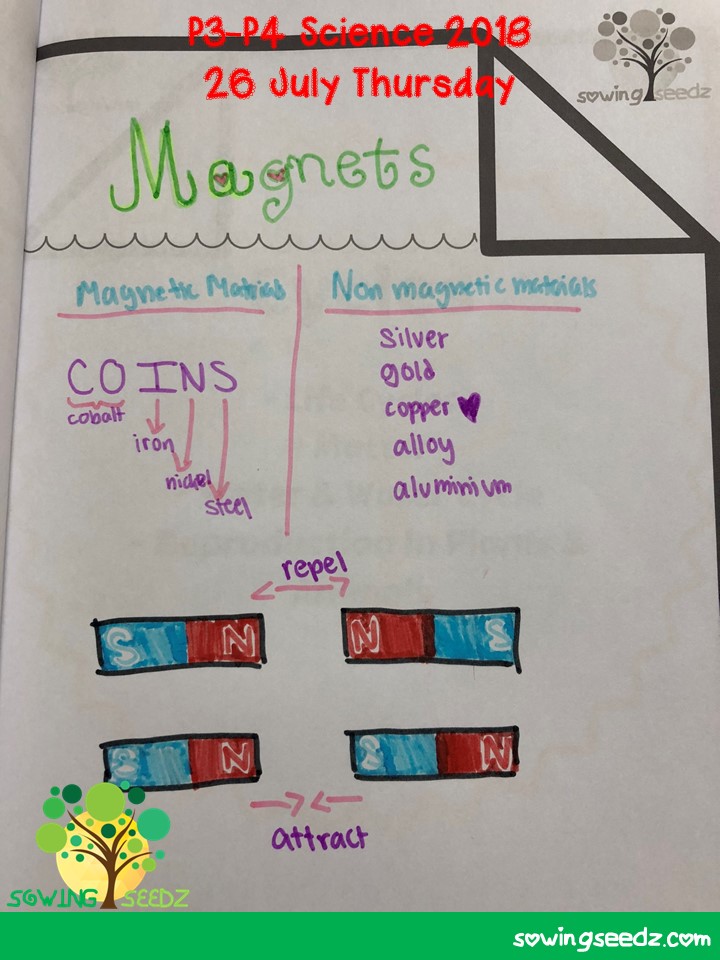 P3-P4 Science 2018
26 July Thursday
sowing seedz
Magnets
Magnetic Matrials
Non magnetic materials
COINS
cobalt
iron
nickel
steel
Silver
gold
copper
alloy
aluminium
repel
S N
N S
S N
S N
attract
SOWING SEEDZ
sowingseedz.com